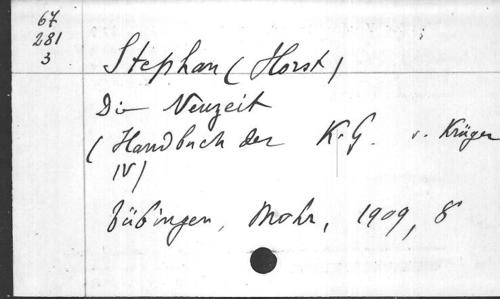 67
281
3
Stephan (Horst)
Die Neuzeit
(Handbuch der K.G. v. Krüger
IV)
Tübingen, Mohr, 1909, 8